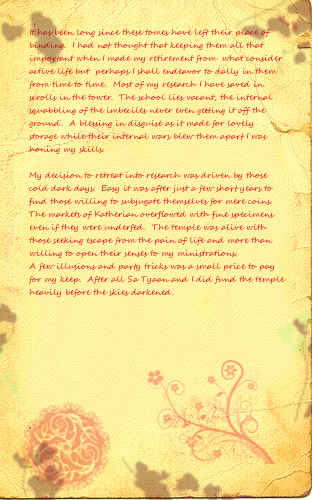 It has been long since these tomes have left their place of
binding. I had not thought that keeping them all that
important when I made my retirement from what consider
active life but perhaps I shall endeavor to daily in them
from time to time. Most of my research I have saved in
scrolls in the tower. The school lies vacant, the internal
squabbling of the imbeciles never even getting it off the
ground. A blessing in disguise as it made for lovely
storage while their internal wars blew them apart I was
honing my skills.

My decision to retreat into research was driven by those
cold dark days. Easy it was after just a few short years to
find those willing to subjugate themselves for mere coins.
The markets of Katherian overflowed with fine specimens
even if they were underfed. The temple was alive with
those seeking escape from the pain of life and more than
willing to open their senses to my ministrations.
A few illusions and party tricks was a small price to pay
for my keep. After all Sa Tyaan and I did fund the temple
heavily before the skies darkened.